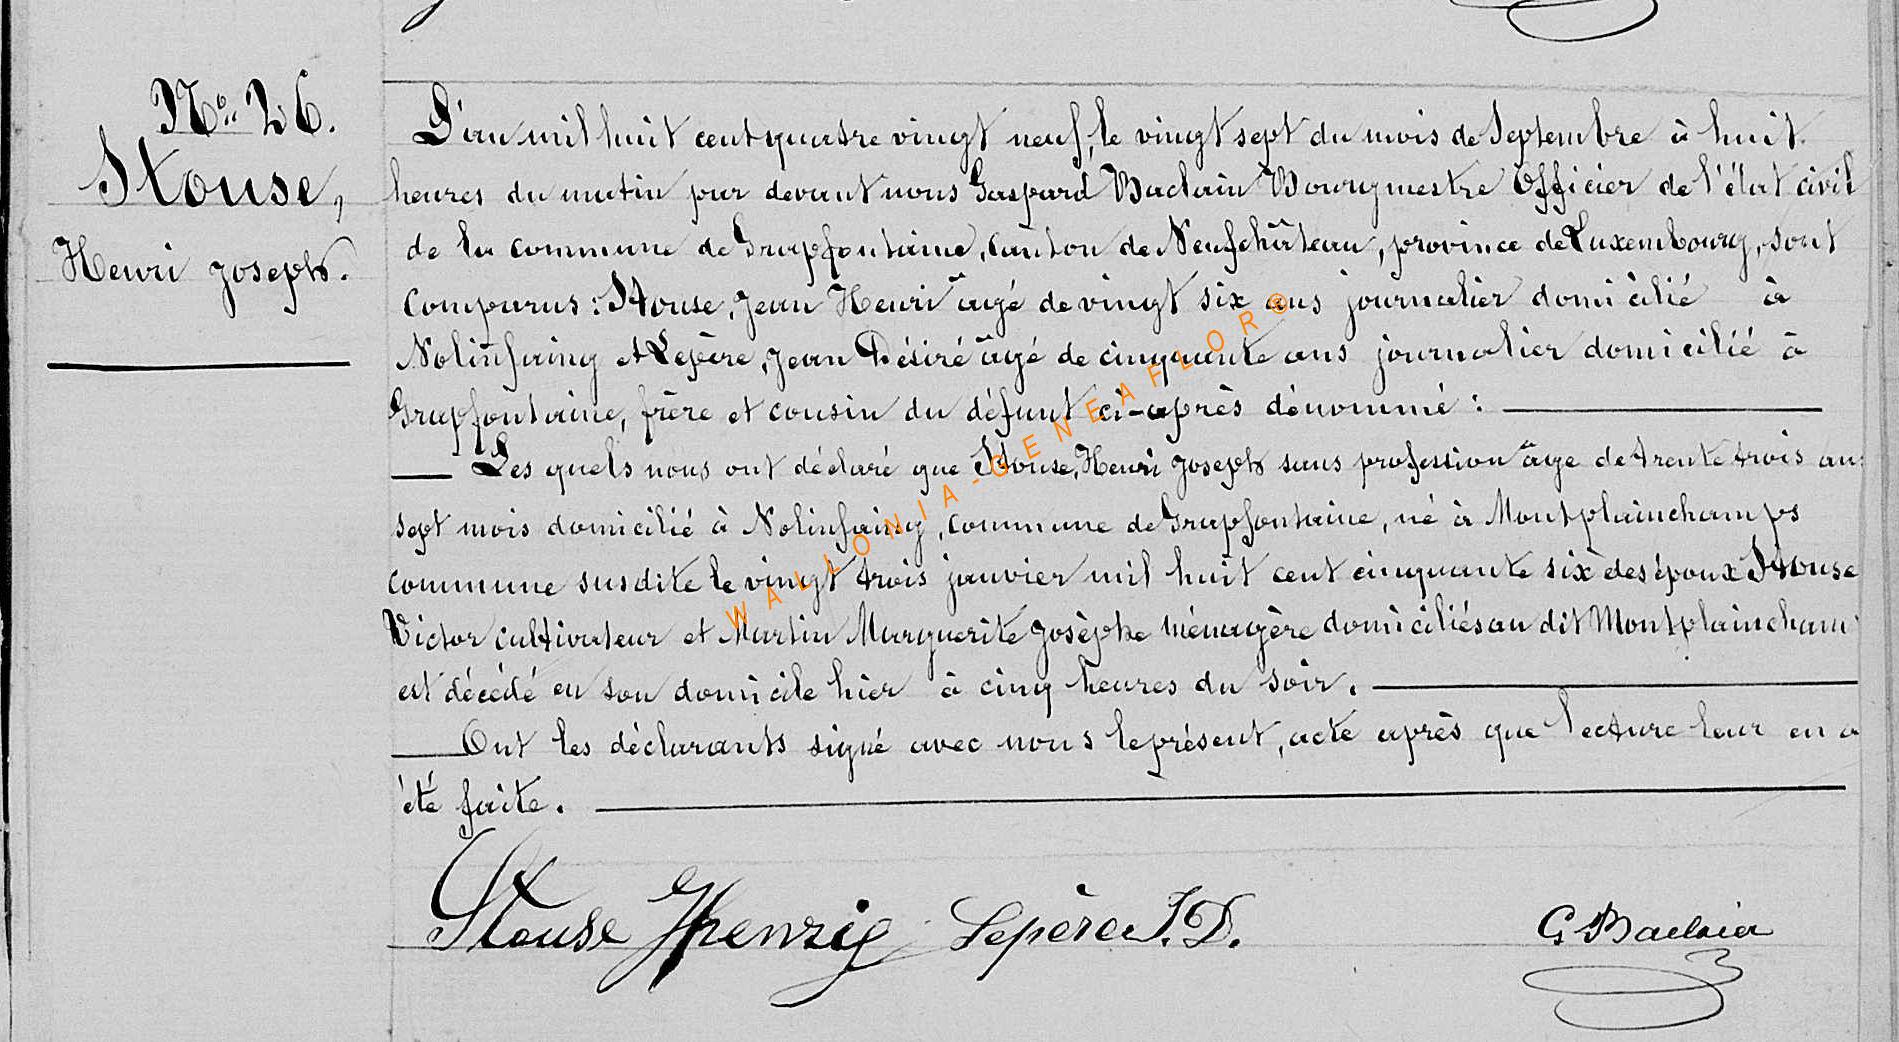 No. 26.
Stouse,
Henri Joseph.
L'an mil huit cent quatre vingt neuf, le vingt sept du mois de Septembre à huit
heures du matin par devant nous Gaspard Baclain Bourgmestre Officier de l'état civil
de la commune de Grapfontaine, canton de Neufchâteau, province de Luxembourg, sont
comparus : Stouse, Jean Henri âgé de vingt six ans journalier domicilié à
Nolinfaing et Lepère, Jean Désiré âgé de cinquante ans journalier domicilié à
Grapfontaine, frère et cousin du défunt ci-après dénommé :
Les quels nous ont déclaré que Stouse, Henri Joseph sans profession âgé de trente trois ans
sept mois domicilié à Nolinfaing, commune de Grapfontaine, né à Montplainchamps
commune susdite le vingt trois janvier mil huit cent cinquante six des époux Stouse
Victor cultivateur et Martin Marguerite Josèphe ménagère domiciliés au dit Montplaincham
est décédé en son domicile hier à cinq heures du soir.
Ont les déclarants signé avec nous le présent, acte après que lecture leur en a
été faite.
Stouse Henri Lepère J.D. G Baclain
WALLONIA-GENEAFLOR®